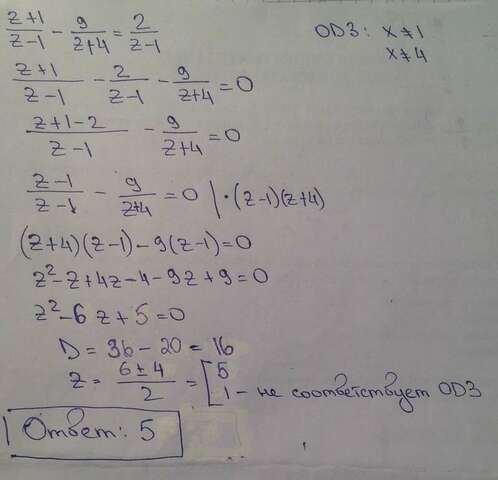 (z+1)/(z-1) - 9/(z+4) = 2/(z-1)
ОДЗ: x≠1
x≠4
(z+1)/(z-1) - 2/(z-1) - 9/(z+4) = 0
(z+1-2)/(z-1) - 9/(z+4) = 0
(z-1)/(z-1) - 9/(z+4) = 0 | ·(z-1)(z+4)
(z+4)(z-1)-9(z-1)=0
z²-z+4z-4-9z+9=0
z²-6z+5=0
D=36-20=16
z = (6±4)/2 = [5
1 - не соответствует ОДЗ
Ответ: 5